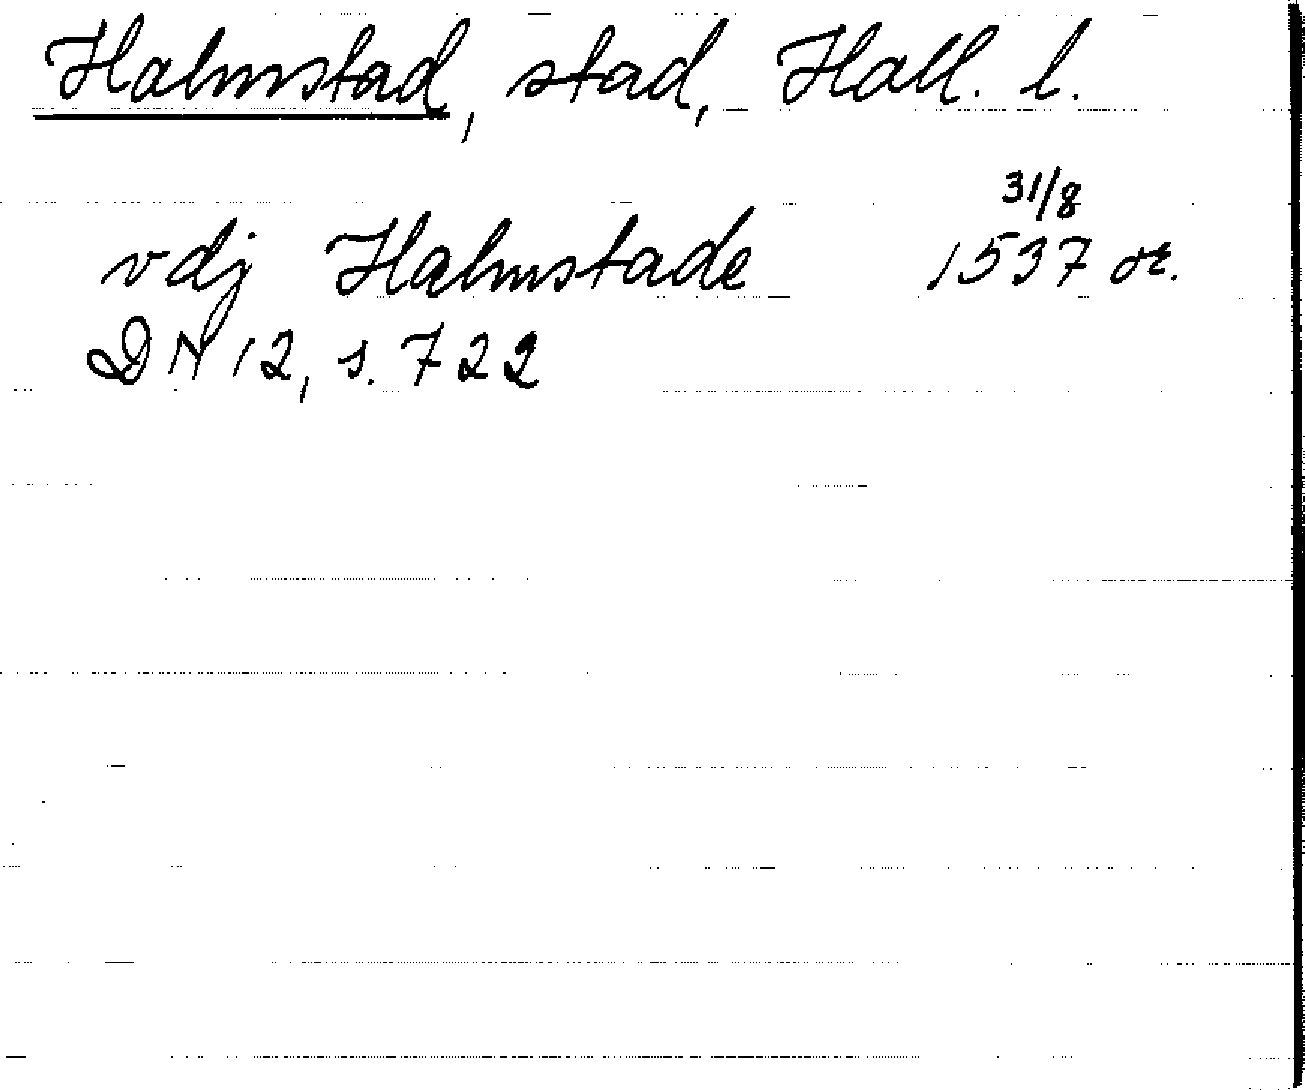 Halmstad, stad, Hall. l.
31/8
vdj Halmstade 1537 or.
DN 12, s. 722